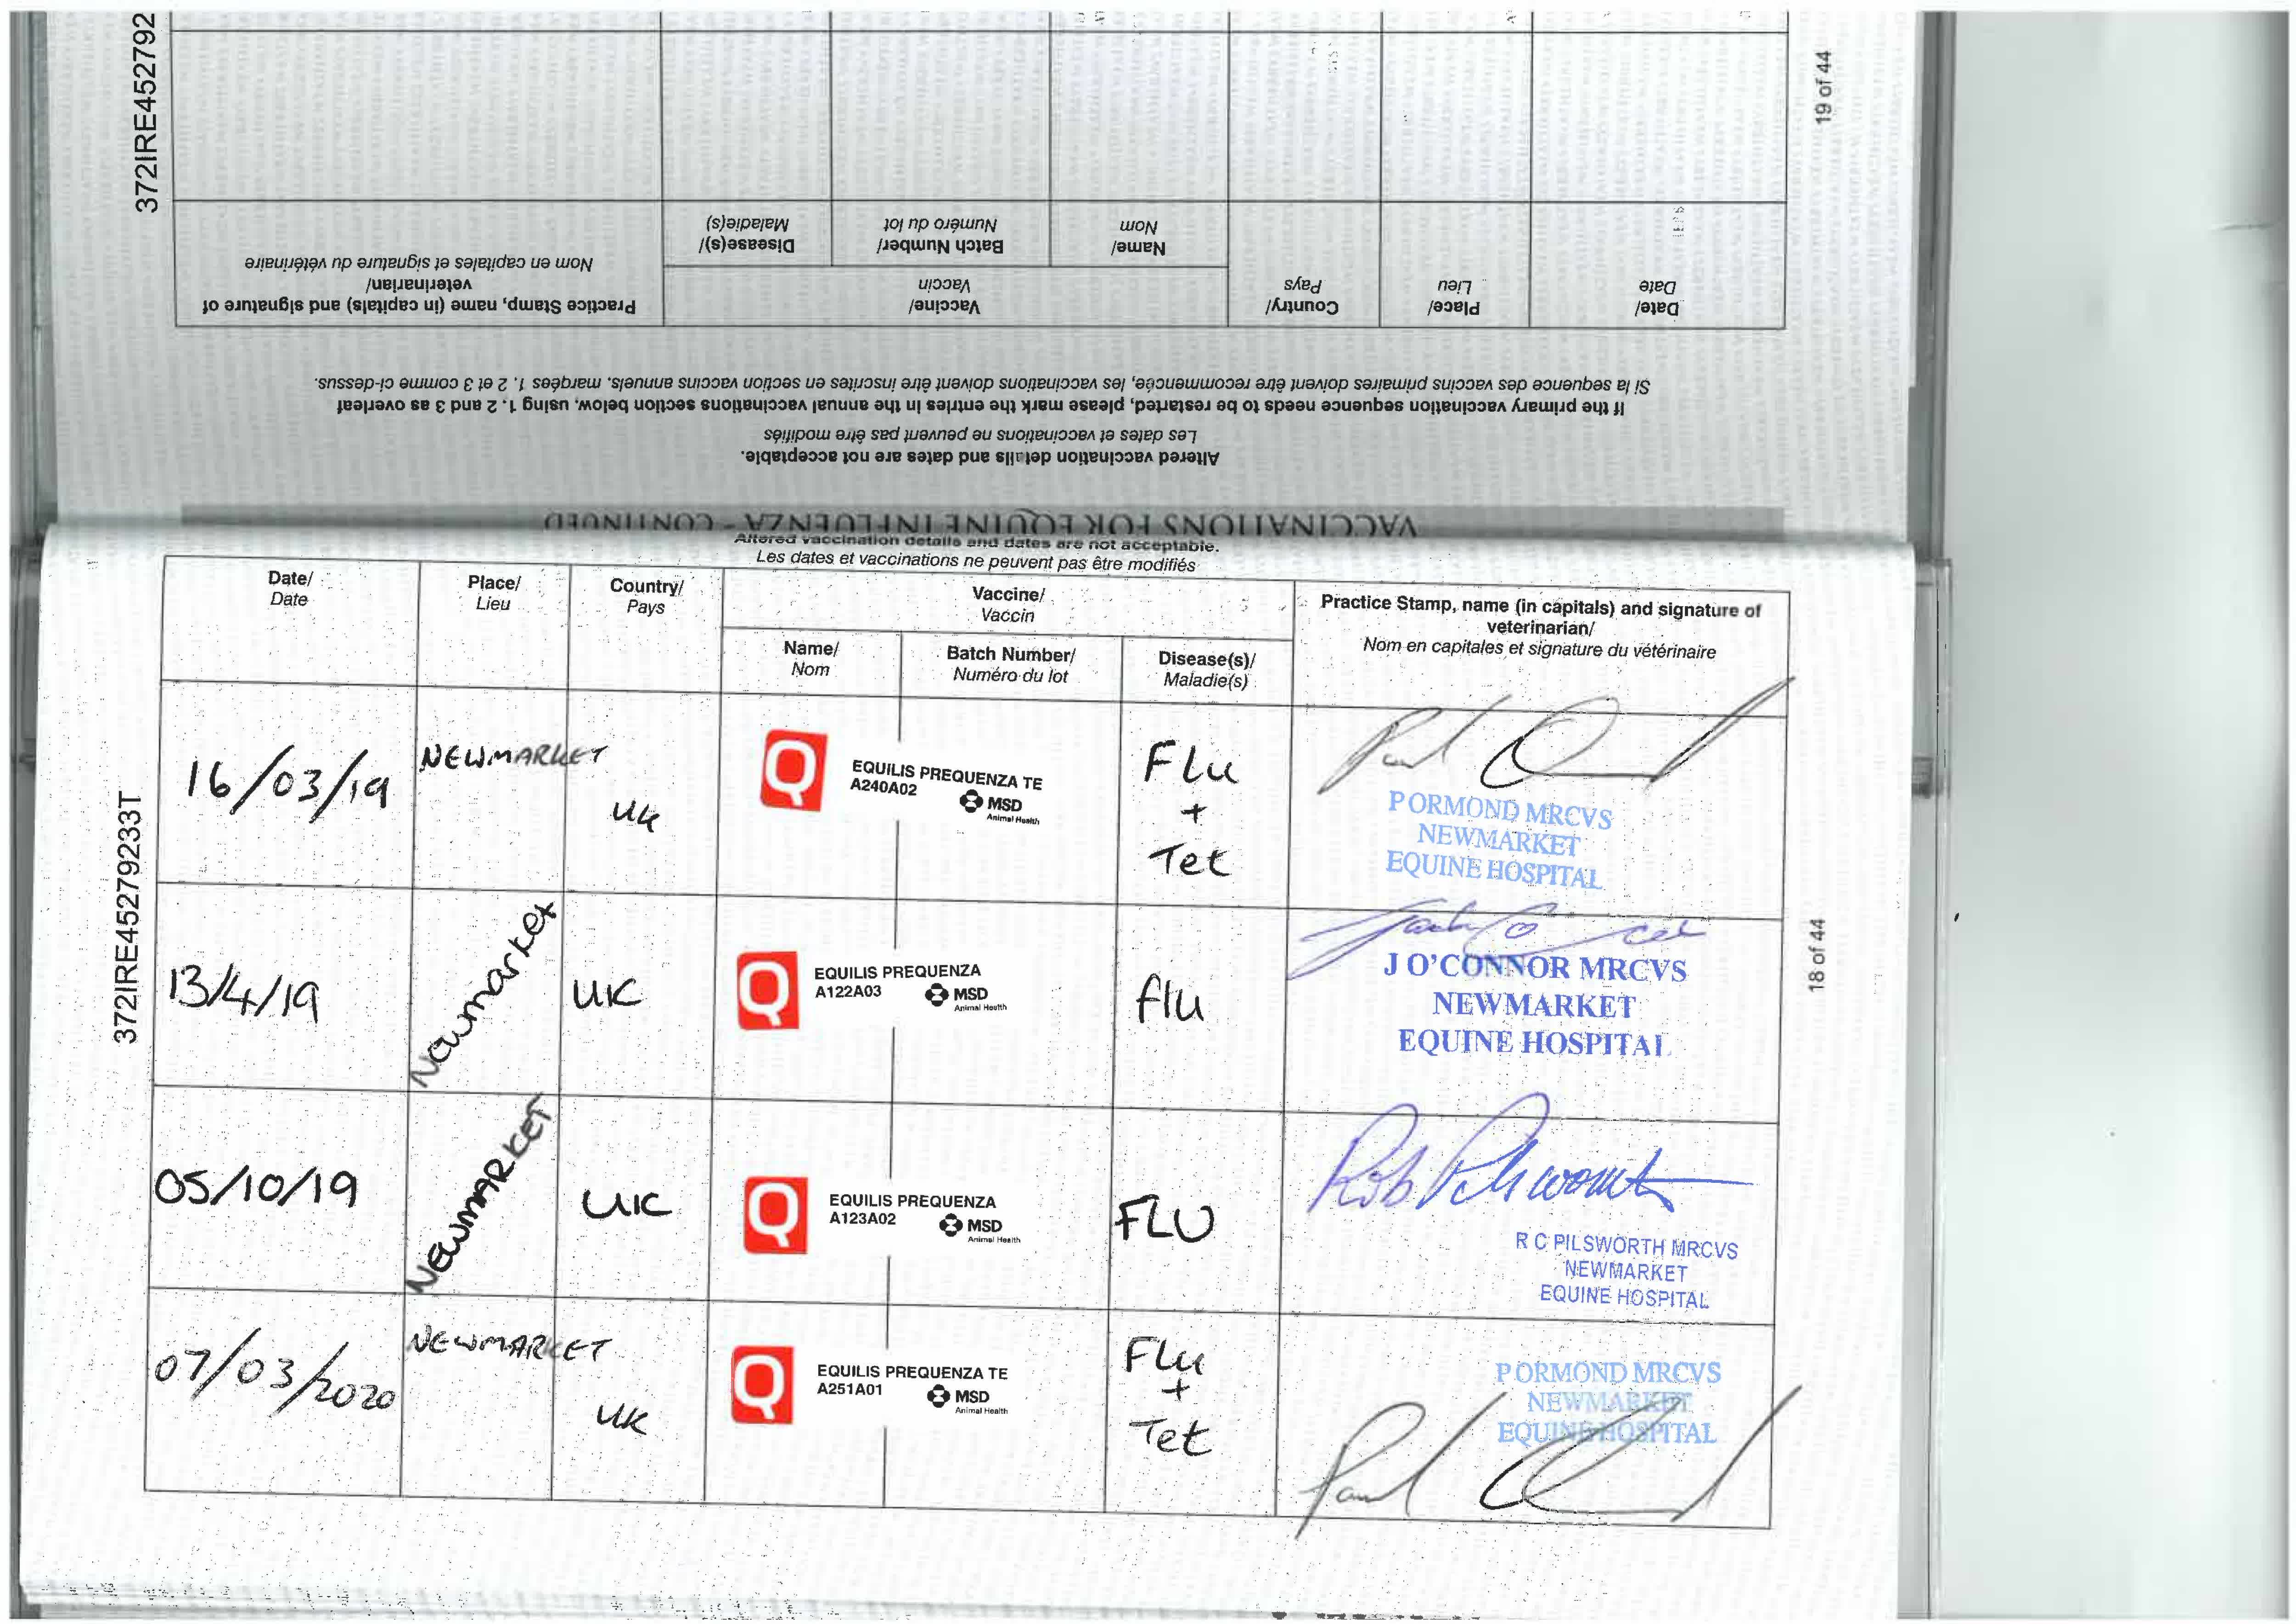 372IRE4527792
19 of 44
VACCINATIONS FOR EQUINE INFLUENZA - CONTINUED
Altered vaccination details and dates are not acceptable.
Les dates et vaccinations ne peuvent pas être modifiés
If the primary vaccination sequence needs to be restarted, please mark the entries in the annual vaccinations section below, using 1. 2 and 3 as overleaf
Si la séquence des vaccins primaires doivent être recommencée, les vaccinations doivent être inscrites en section vaccins annuels, marqées 1. 2 et 3 comme ci-dessus.
Date/
Date
Place/
Lieu
Country/
Pays
Vaccine/
Vaccin
Name/
Nom
Batch Number/
Numéro du lot
Disease(s)/
Maladie(s)
Practice Stamp, name (in capitals) and signature of
veterinarian/
Nom en capitales et signature du vétérinaire
Altered vaccination details and dates are not acceptable.
Les dates et vaccinations ne peuvent pas être modifiés
372IRE45279233T
18 of 44
Date/
Date
Place/
Lieu
Country/
Pays
Vaccine/
Vaccin
Name/
Nom
Batch Number/
Numéro du lot
Disease(s)/
Maladie(s)
Practice Stamp, name (in capitals) and signature of
veterinarian/
Nom en capitales et signature du vétérinaire
16/03/19
NEWMARKET
UK
Q
EQUILIS PREQUENZA TE
A240A02
MSD
Animal Health
Flu
+
Tet
P ORMOND MRCVS
NEWMARKET
EQUINE HOSPITAL
13/4/19
Newmarket
UK
Q
EQUILIS PREQUENZA
A122A03
MSD
Animal Health
flu
J O'CONNOR MRCVS
NEWMARKET
EQUINE HOSPITAL
05/10/19
NEWMARKET
UK
Q
EQUILIS PREQUENZA
A123A02
MSD
Animal Health
FLU
Rob Pilsworth
R C PILSWORTH MRCVS
NEWMARKET
EQUINE HOSPITAL
07/03/2020
NEWMARKET
UK
Q
EQUILIS PREQUENZA TE
A251A01
MSD
Animal Health
Flu
+
Tet
P ORMOND MRCVS
NEWMARKET
EQUINE HOSPITAL